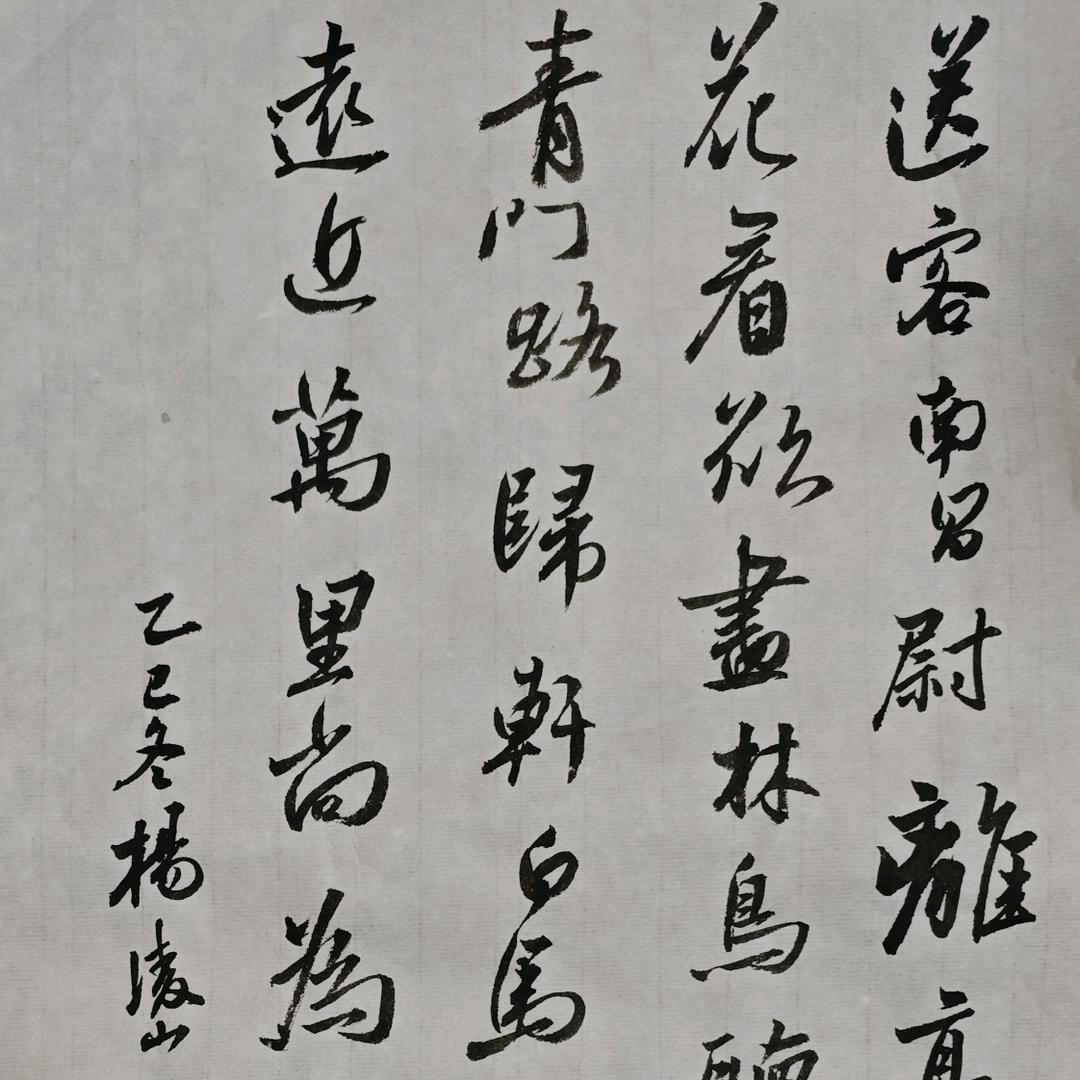 送客南昌尉離亭
花看欲盡林鳥聽
青門路歸軒白馬
遠近萬里尚為
乙巳冬楊淩山